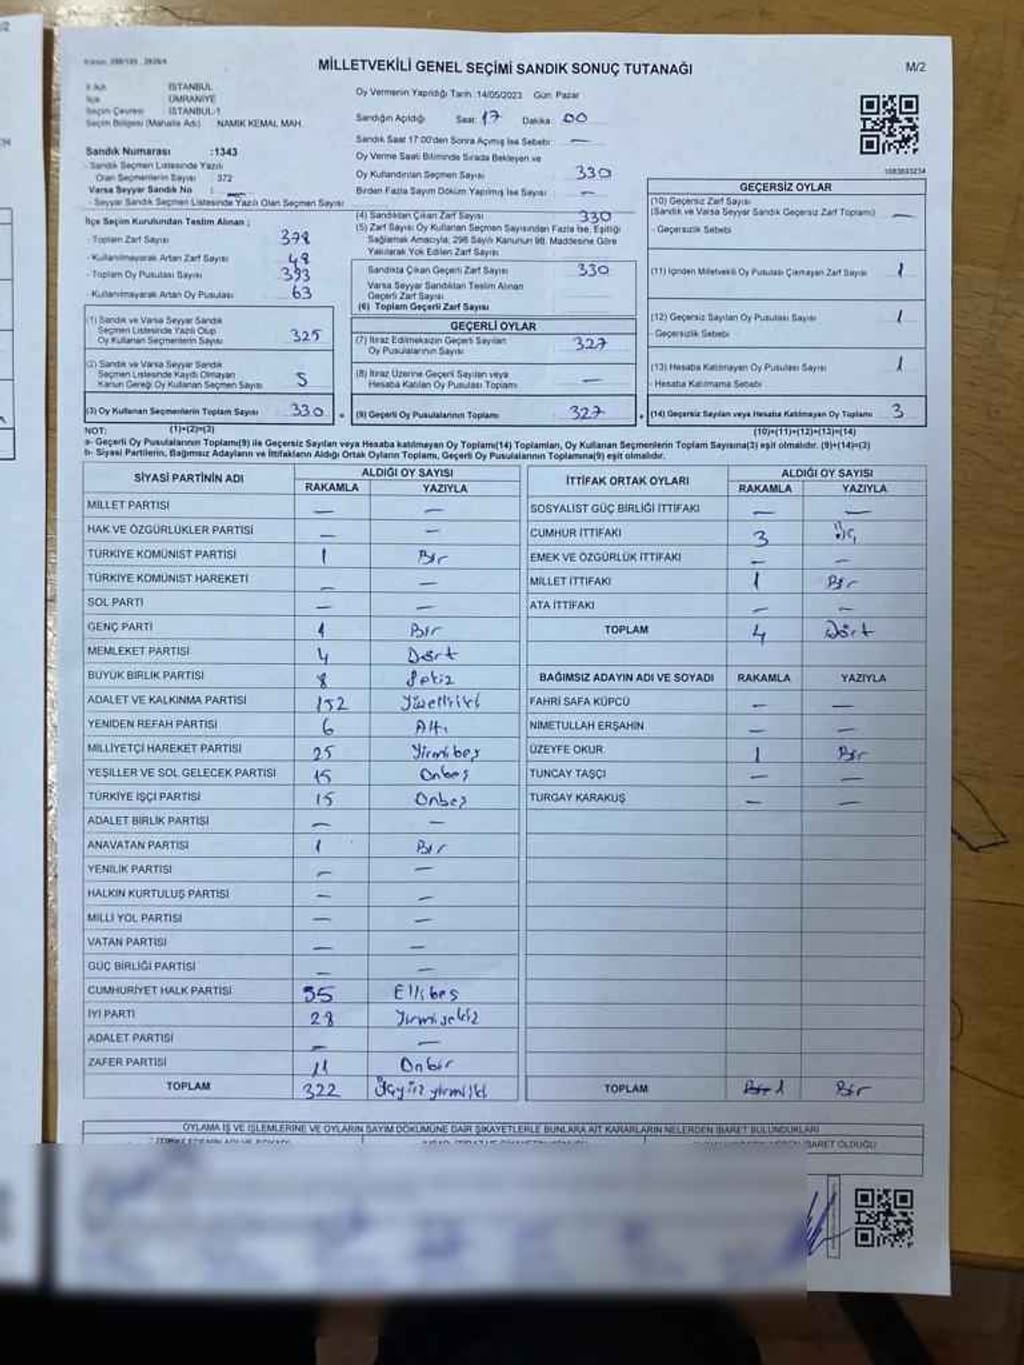 MİLLETVEKİLİ GENEL SEÇİMİ SANDIK SONUÇ TUTANAĞI
M/2
İSTANBUL
ÜMRANİYE
Seçim Çevresi : İSTANBUL-1
Seçim Bölgesi (Mahalle Adı) NAMIK KEMAL MAH.
Sandık Numarası :1343
- Sandık Seçmen Listesinde Yazılı
Olan Seçmenlerin Sayısı : 372
Varsa Seyyar Sandık No : —
- Seyyar Sandık Seçmen Listesinde Yazılı Olan Seçmen Sayısı
İlçe Seçim Kurulundan Teslim Alınan ;
- Toplam Zarf Sayısı 378
- Kullanılmayarak Artan Zarf Sayısı 48
- Toplam Oy Pusulası Sayısı 393
- Kullanılmayarak Artan Oy Pusulası 63
(1) Sandık ve Varsa Seyyar Sandık
Seçmen Listesinde Yazılı Olup
Oy Kullanan Seçmenlerin Sayısı 325
(2) Sandık ve Varsa Seyyar Sandık
Seçmen Listesinde Kaydı Olmayan
Kanun Gereği Oy Kullanan Seçmen Sayısı 5
(3) Oy Kullanan Seçmenlerin Toplam Sayısı 330
Oy Vermenin Yapıldığı Tarih: 14/05/2023 Gün: Pazar
Sandığın Açıldığı Saat: 17 Dakika: 00
Sandık Saat 17:00'den Sonra Açılmış İse Sebebi: —
Oy Verme Saati Bitiminde Sırada Bekleyen ve
Oy Kullandırılan Seçmen Sayısı 330
Birden Fazla Sayım Döküm Yapılmış İse Sayısı —
(4) Sandıktan Çıkan Zarf Sayısı 330
(5) Zarf Sayısı Oy Kullanan Seçmen Sayısından Fazla İse, Eşitliği
Sağlamak Amacıyla, 298 Sayılı Kanunun 98. Maddesine Göre
Yakılarak Yok Edilen Zarf Sayısı
Sandıkta Çıkan Geçerli Zarf Sayısı 330
Varsa Seyyar Sandıktan Teslim Alınan
Geçerli Zarf Sayısı
(6) Toplam Geçerli Zarf Sayısı
GEÇERLİ OYLAR
(7) İtiraz Edilmeksizin Geçerli Sayılan
Oy Pusulalarının Sayısı 327
(8) İtiraz Üzerine Geçerli Sayılan veya
Hesaba Katılan Oy Pusulası Toplamı —
(9) Geçerli Oy Pusulalarının Toplamı 327
GEÇERSİZ OYLAR
(10) Geçersiz Zarf Sayısı
(Sandık ve Varsa Seyyar Sandık Geçersiz Zarf Toplamı) —
- Geçersizlik Sebebi
(11) İçinden Milletvekili Oy Pusulası Çıkmayan Zarf Sayısı 1
(12) Geçersiz Sayılan Oy Pusulası Sayısı 1
- Geçersizlik Sebebi
(13) Hesaba Katılmayan Oy Pusulası Sayısı 1
- Hesaba Katılmama Sebebi
(14) Geçersiz Sayılan veya Hesaba Katılmayan Oy Toplamı 3
NOT: (1)+(2)=(3) (10)+(11)+(12)+(13)=(14)
a- Geçerli Oy Pusulalarının Toplamı(9) ile Geçersiz Sayılan veya Hesaba katılmayan Oy Toplamı(14) Toplamları, Oy Kullanan Seçmenlerin Toplam Sayısına(3) eşit olmalıdır. (9)+(14)=(3)
b- Siyasi Partilerin, Bağımsız Adayların ve İttifakların Aldığı Ortak Oyların Toplamı, Geçerli Oy Pusulalarının Toplamına(9) eşit olmalıdır.
SİYASİ PARTİNİN ADI ALDIĞI OY SAYISI
RAKAMLA YAZIYLA
MİLLET PARTİSİ — —
HAK VE ÖZGÜRLÜKLER PARTİSİ — —
TÜRKİYE KOMÜNİST PARTİSİ 1 Bir
TÜRKİYE KOMÜNİST HAREKETİ — —
SOL PARTİ — —
GENÇ PARTİ 1 Bir
MEMLEKET PARTİSİ 4 Dört
BÜYÜK BİRLİK PARTİSİ 8 Sekiz
ADALET VE KALKINMA PARTİSİ 152 Yüzelliiki
YENİDEN REFAH PARTİSİ 6 Altı
MİLLİYETÇİ HAREKET PARTİSİ 25 Yirmibeş
YEŞİLLER VE SOL GELECEK PARTİSİ 15 Onbeş
TÜRKİYE İŞÇİ PARTİSİ 15 Onbeş
ADALET BİRLİK PARTİSİ — —
ANAVATAN PARTİSİ 1 Bir
YENİLİK PARTİSİ — —
HALKIN KURTULUŞ PARTİSİ — —
MİLLİ YOL PARTİSİ — —
VATAN PARTİSİ — —
GÜÇ BİRLİĞİ PARTİSİ — —
CUMHURİYET HALK PARTİSİ 55 Ellibeş
İYİ PARTİ 28 Yirmisekiz
ADALET PARTİSİ — —
ZAFER PARTİSİ 11 Onbir
TOPLAM 322 Üçyüzyirmiiki
İTTİFAK ORTAK OYLARI ALDIĞI OY SAYISI
RAKAMLA YAZIYLA
SOSYALİST GÜÇ BİRLİĞİ İTTİFAKI — —
CUMHUR İTTİFAKI 3 Üç
EMEK VE ÖZGÜRLÜK İTTİFAKI — —
MİLLET İTTİFAKI 1 Bir
ATA İTTİFAKI — —
TOPLAM 4 Dört
BAĞIMSIZ ADAYIN ADI VE SOYADI RAKAMLA YAZIYLA
FAHRİ SAFA KÜPCÜ — —
NİMETULLAH ERŞAHİN — —
ÜZEYFE OKUR 1 Bir
TUNCAY TAŞÇI — —
TURGAY KARAKUŞ — —
TOPLAM Bir 1 Bir
OYLAMA İŞ VE İŞLEMLERİNE VE OYLARIN SAYIM DÖKÜMÜNE DAİR ŞİKAYETLERLE BUNLARA AİT KARARLARIN NELERDEN İBARET BULUNDUKLARI
İBARET OLDUĞU